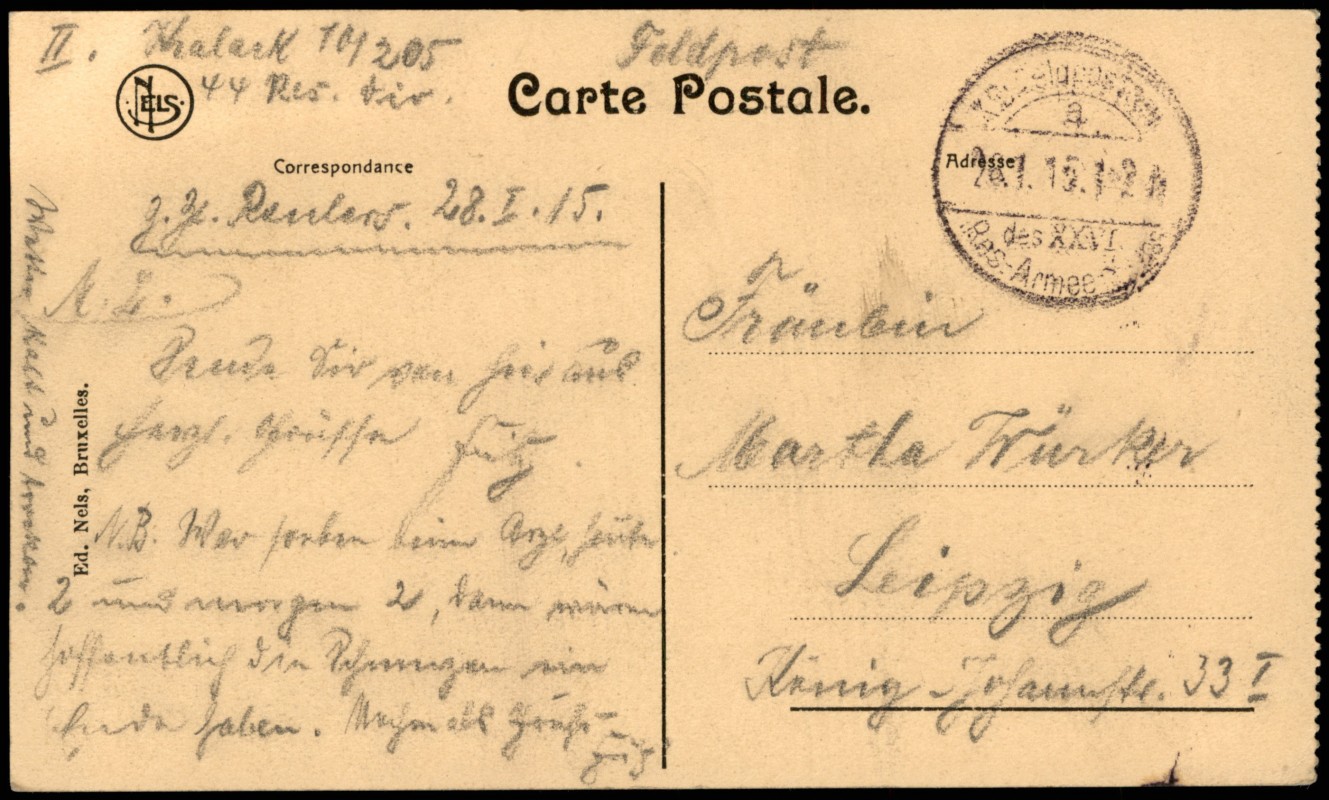 II. 10/205
44 Res. Div.
Feldpost
NELS.
Carte Postale.
K.D. Feldpostexp.
a
28.1.15. 1-2 N
des XXVI.
Res.-Armee
Correspondance
Adresse
z. Zt. Roulers. 28.I.15.
M. L.
Sende Dir von hier aus
herzl. Grüsse Fritz.
N.B. War soeben beim Arzt, heute
2 und morgen 2, dann
hoffentlich die Schmerzen ein
Ende haben. Nochmals Gruß
Fritz
Wetter kalt und trocken.
Ed. Nels, Bruxelles.
Fräulein
Martha Würker
Leipzig
König-Johannstr. 33 I